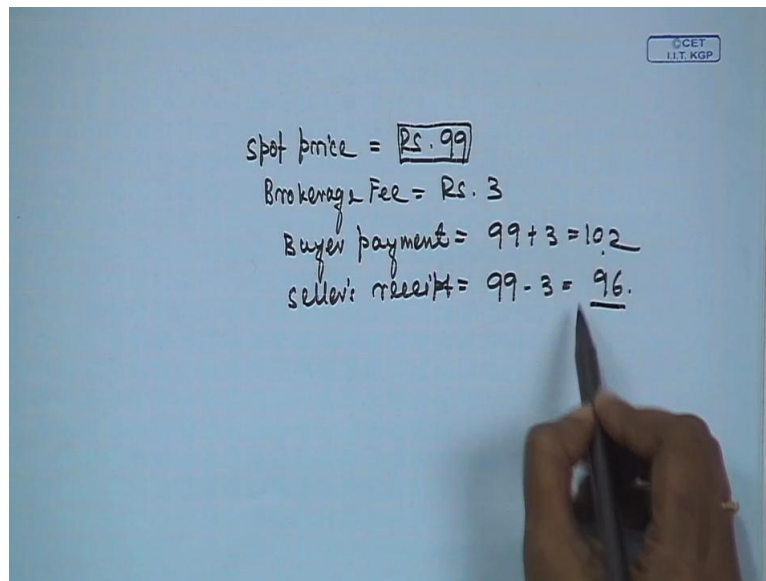 ©CET
I.I.T. KGP
Spot price = Rs. 99
Brokerage Fee = Rs. 3
Buyer payment = 99 + 3 = 102
Seller's receipt = 99 - 3 = 96.